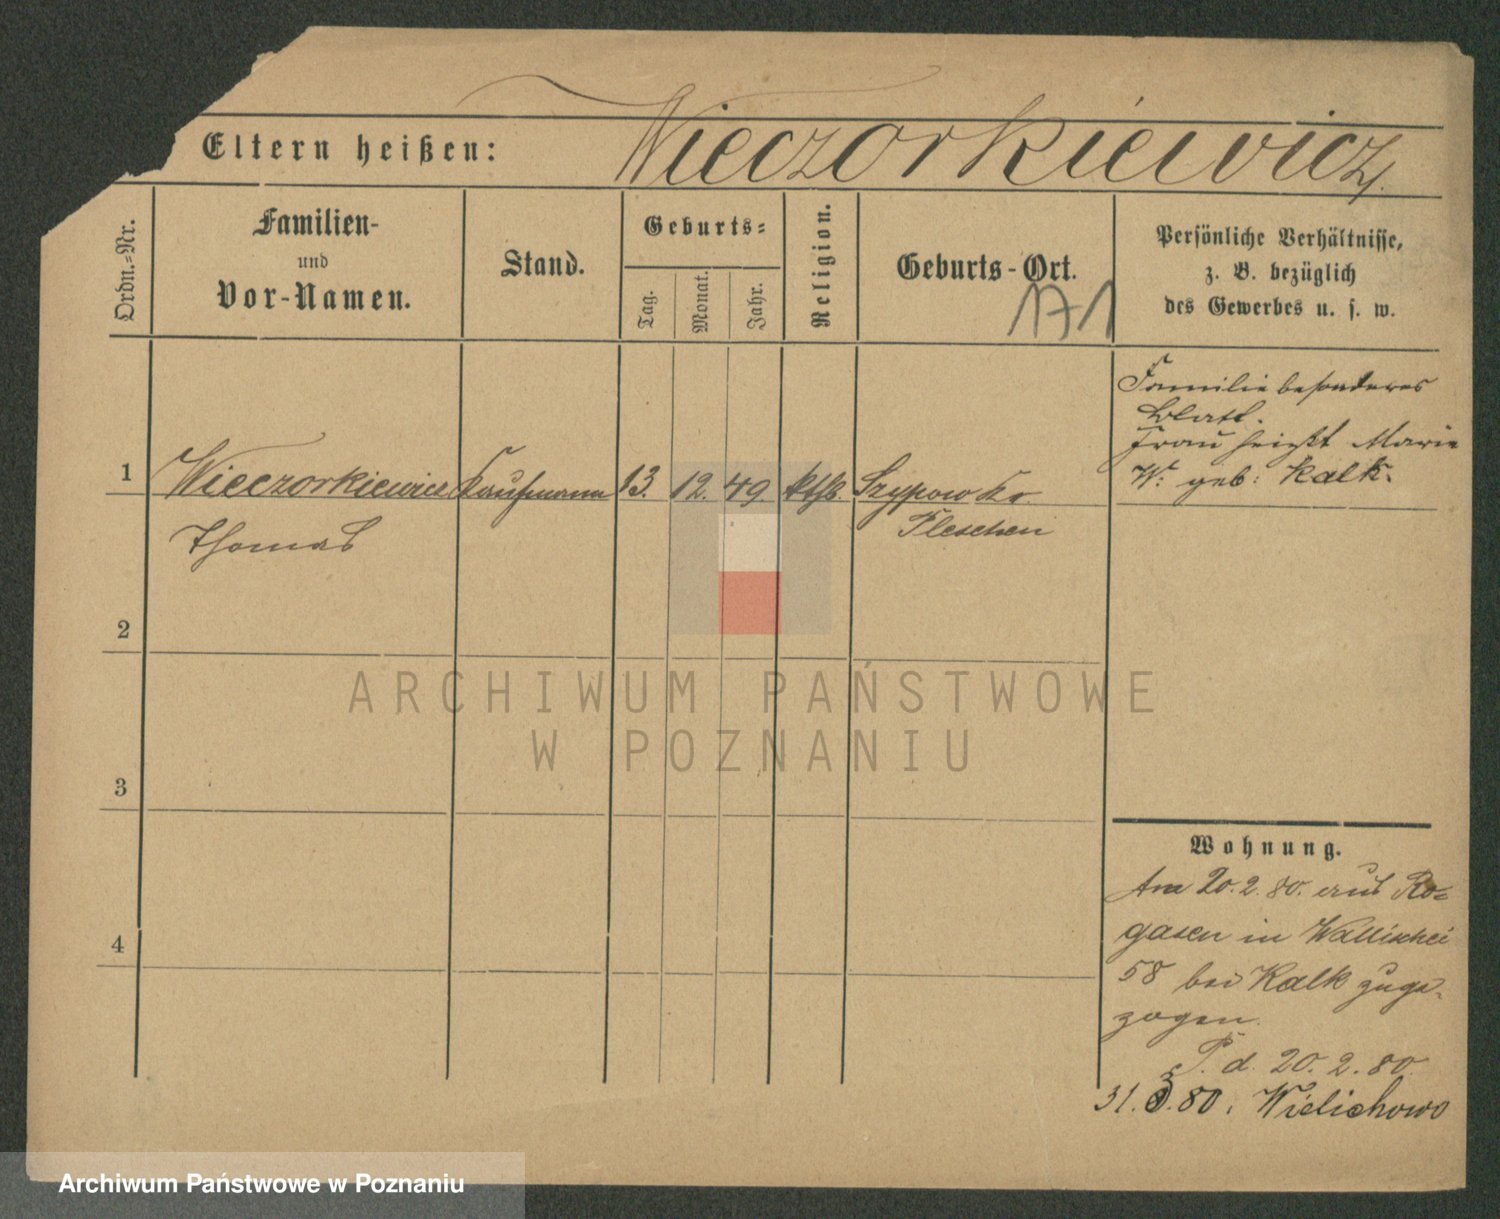 Wieczorkiewicz.
Eltern heißen:
Ordn.=Nr.
Familien-
und
Vor-Namen.
Stand.
Geburts=
Tag.
Monat.
Jahr.
Religion.
Geburts-Ort.
171
Persönliche Verhältnisse,
z. B. bezüglich
des Gewerbes u. s. w.
Familie besonderes
Blatt.
Frau heißt Marie
W. geb: Kalk.
1 Wieczorkiewicz Kaufmann 13. 12. 49. kth. Szypow Kr.
Thomas Pleschen
2
3
4
Wohnung.
Am 20.2.80. aus Ro=
gasen in Wallischei
58 bei Kalk zuge-
zogen.
P. d. 20.2.80.
31.3.80. Wielichowo
ARCHIWUM PAŃSTWOWE
W POZNANIU
Archiwum Państwowe w Poznaniu